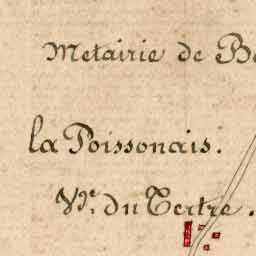 Metairie de B
la Poissonais.
Vge. du Tertre.